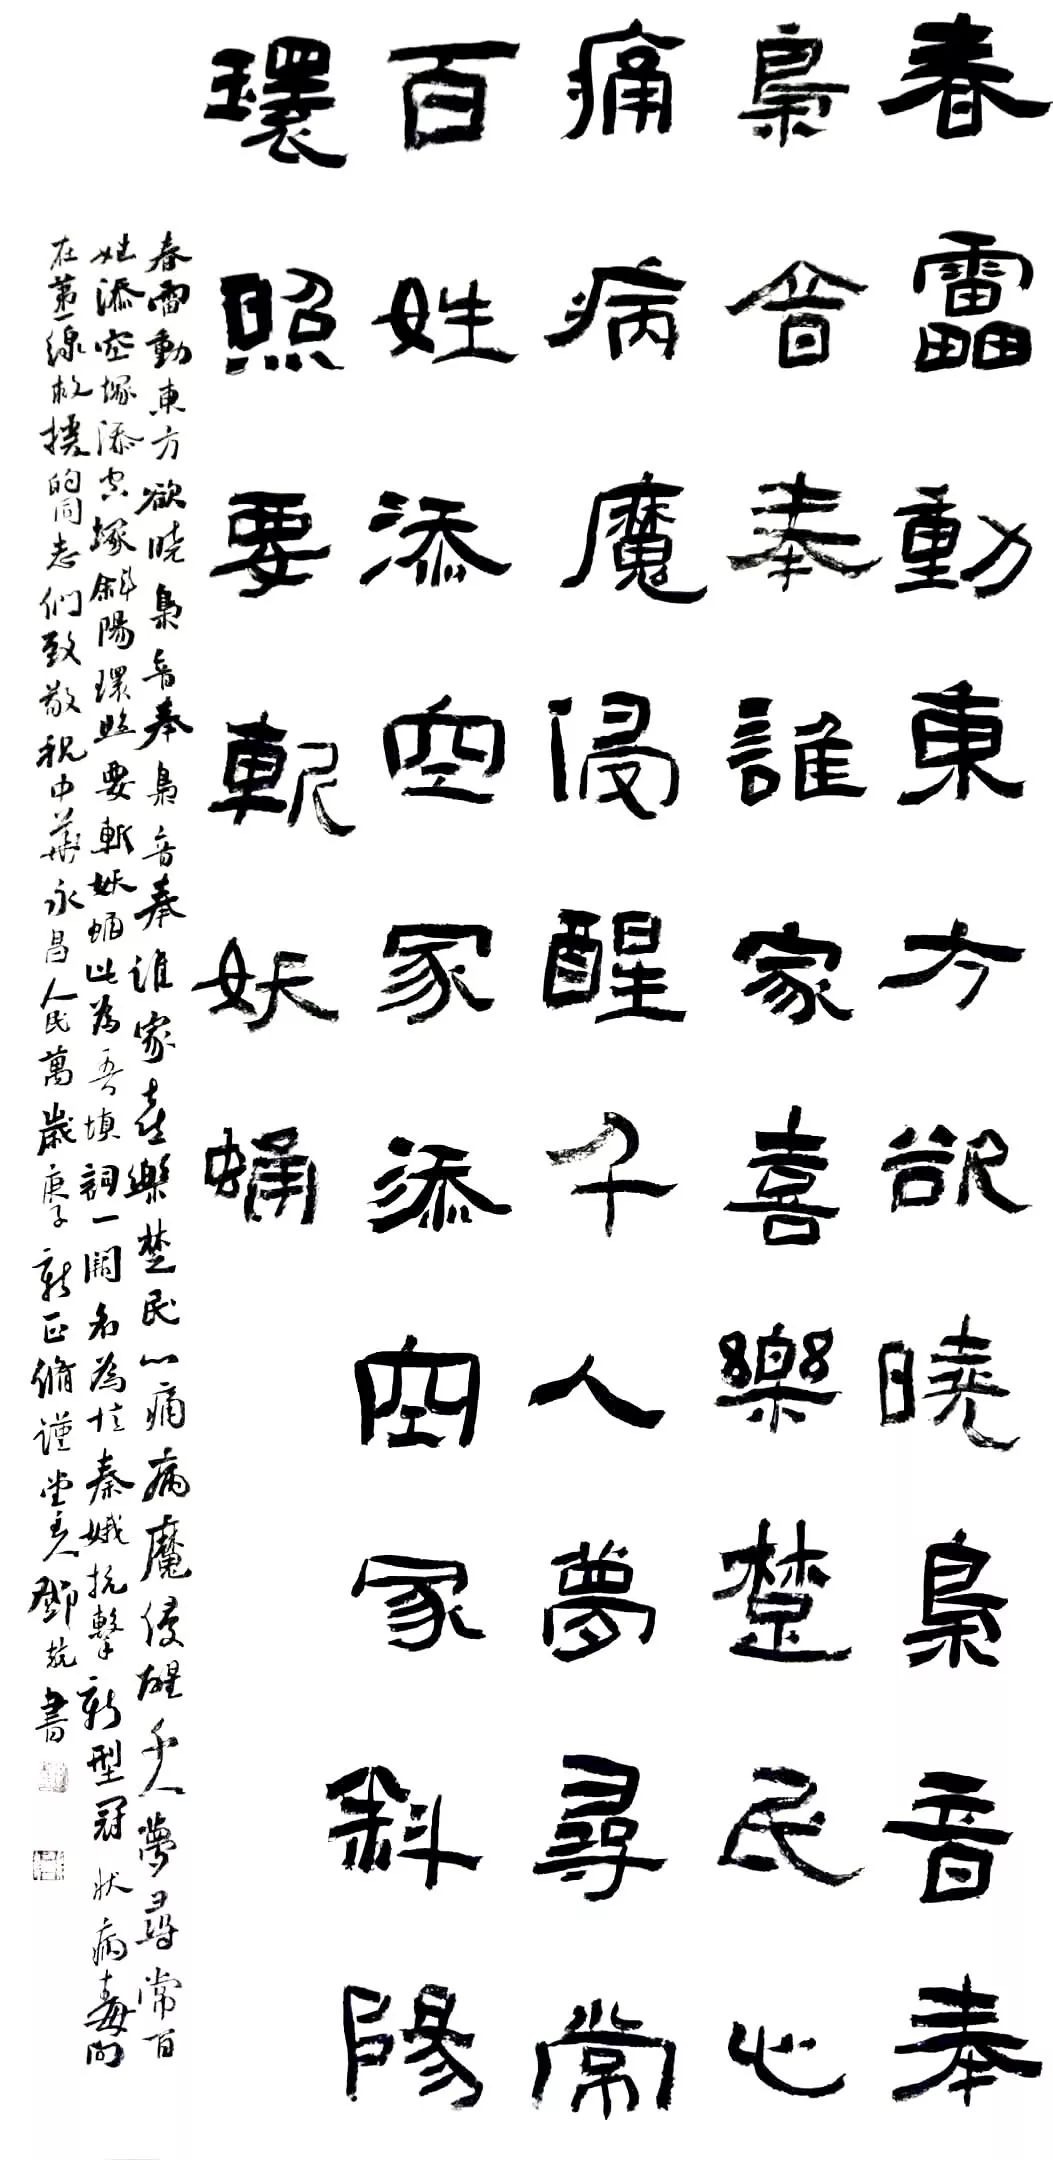 春靁動東方欲曉梟音奉
梟音奉誰家喜樂楚民心
痛病魔侵醒千人夢尋常
百姓添空冢添空冢斜陽
環照要斬妖蛹
春雷動東方欲曉梟音奉梟音奉誰家喜樂楚民心痛病魔侵醒千人夢尋常百
姓添空塚添空塚斜陽環照要斬妖蛹此為吾填詞一闋名為憶秦娥抗擊新型冠狀病毒向
在第一線救援的同志們致敬祝中華永昌人民萬歲庚子新正脩謹堂主人鄧書